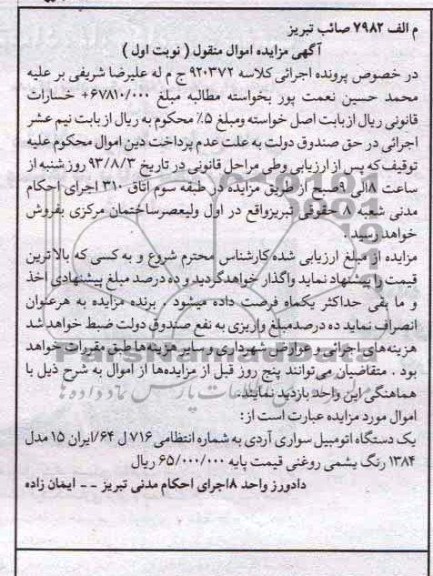 م الف ۷۹۸۲ صائب تبریز
آگهی مزایده اموال منقول ( نوبت اول )
در خصوص پرونده اجرائی کلاسه ۹۲۰۳۷۲ ج م له علیرضا شریفی بر علیه
محمد حسین نعمت پور بخواسته مطالبه مبلغ ۶۷۸۱۰/۰۰۰+ خسارات
قانونی ریال از بابت اصل خواسته ومبلغ ۵٪ محکوم به ریال از بابت نیم عشر
اجرائی در حق صندوق دولت به علت عدم پرداخت دین اموال محکوم علیه
توقیف که پس از ارزیابی وطی مراحل قانونی در تاریخ ۹۳/۸/۳ روز شنبه از
ساعت ۸الی ۹صبح از طریق مزایده در طبقه سوم اتاق ۳۱۰ اجرای احکام
مدنی شعبه ۸ حقوقی تبریزواقع در اول ولیعصرساختمان مرکزی بفروش
خواهد رسید .
مزایده از مبلغ ارزیابی شده کارشناس محترم شروع و به کسی که بالاترین
قیمت را پیشنهاد نماید واگذار خواهدگردید و ده درصد مبلغ پیشنهادی اخذ
و ما بقی حداکثر یکماه فرصت داده میشود . برنده مزایده به هرعنوان
انصراف نماید ده درصدمبلغ واریزی به نفع صندوق دولت ضبط خواهد شد
هزینه‌های اجرائی و عوارض شهرداری و سایر هزینه‌ها طبق مقررات خواهد
بود . متقاضیان می‌توانند پنج روز قبل از مزایده‌ها از اموال به شرح ذیل با
هماهنگی این واحد بازدید نمایند.
اموال مورد مزایده عبارت است از:
یک دستگاه اتومبیل سواری آردی به شماره انتظامی ۷۱۶ ل ۶۴/ایران ۱۵ مدل
۱۳۸۴ رنگ یشمی روغنی قیمت پایه ۶۵/۰۰۰/۰۰۰ ریال
دادورز واحد ۸اجرای احکام مدنی تبریز -- ایمان زاده